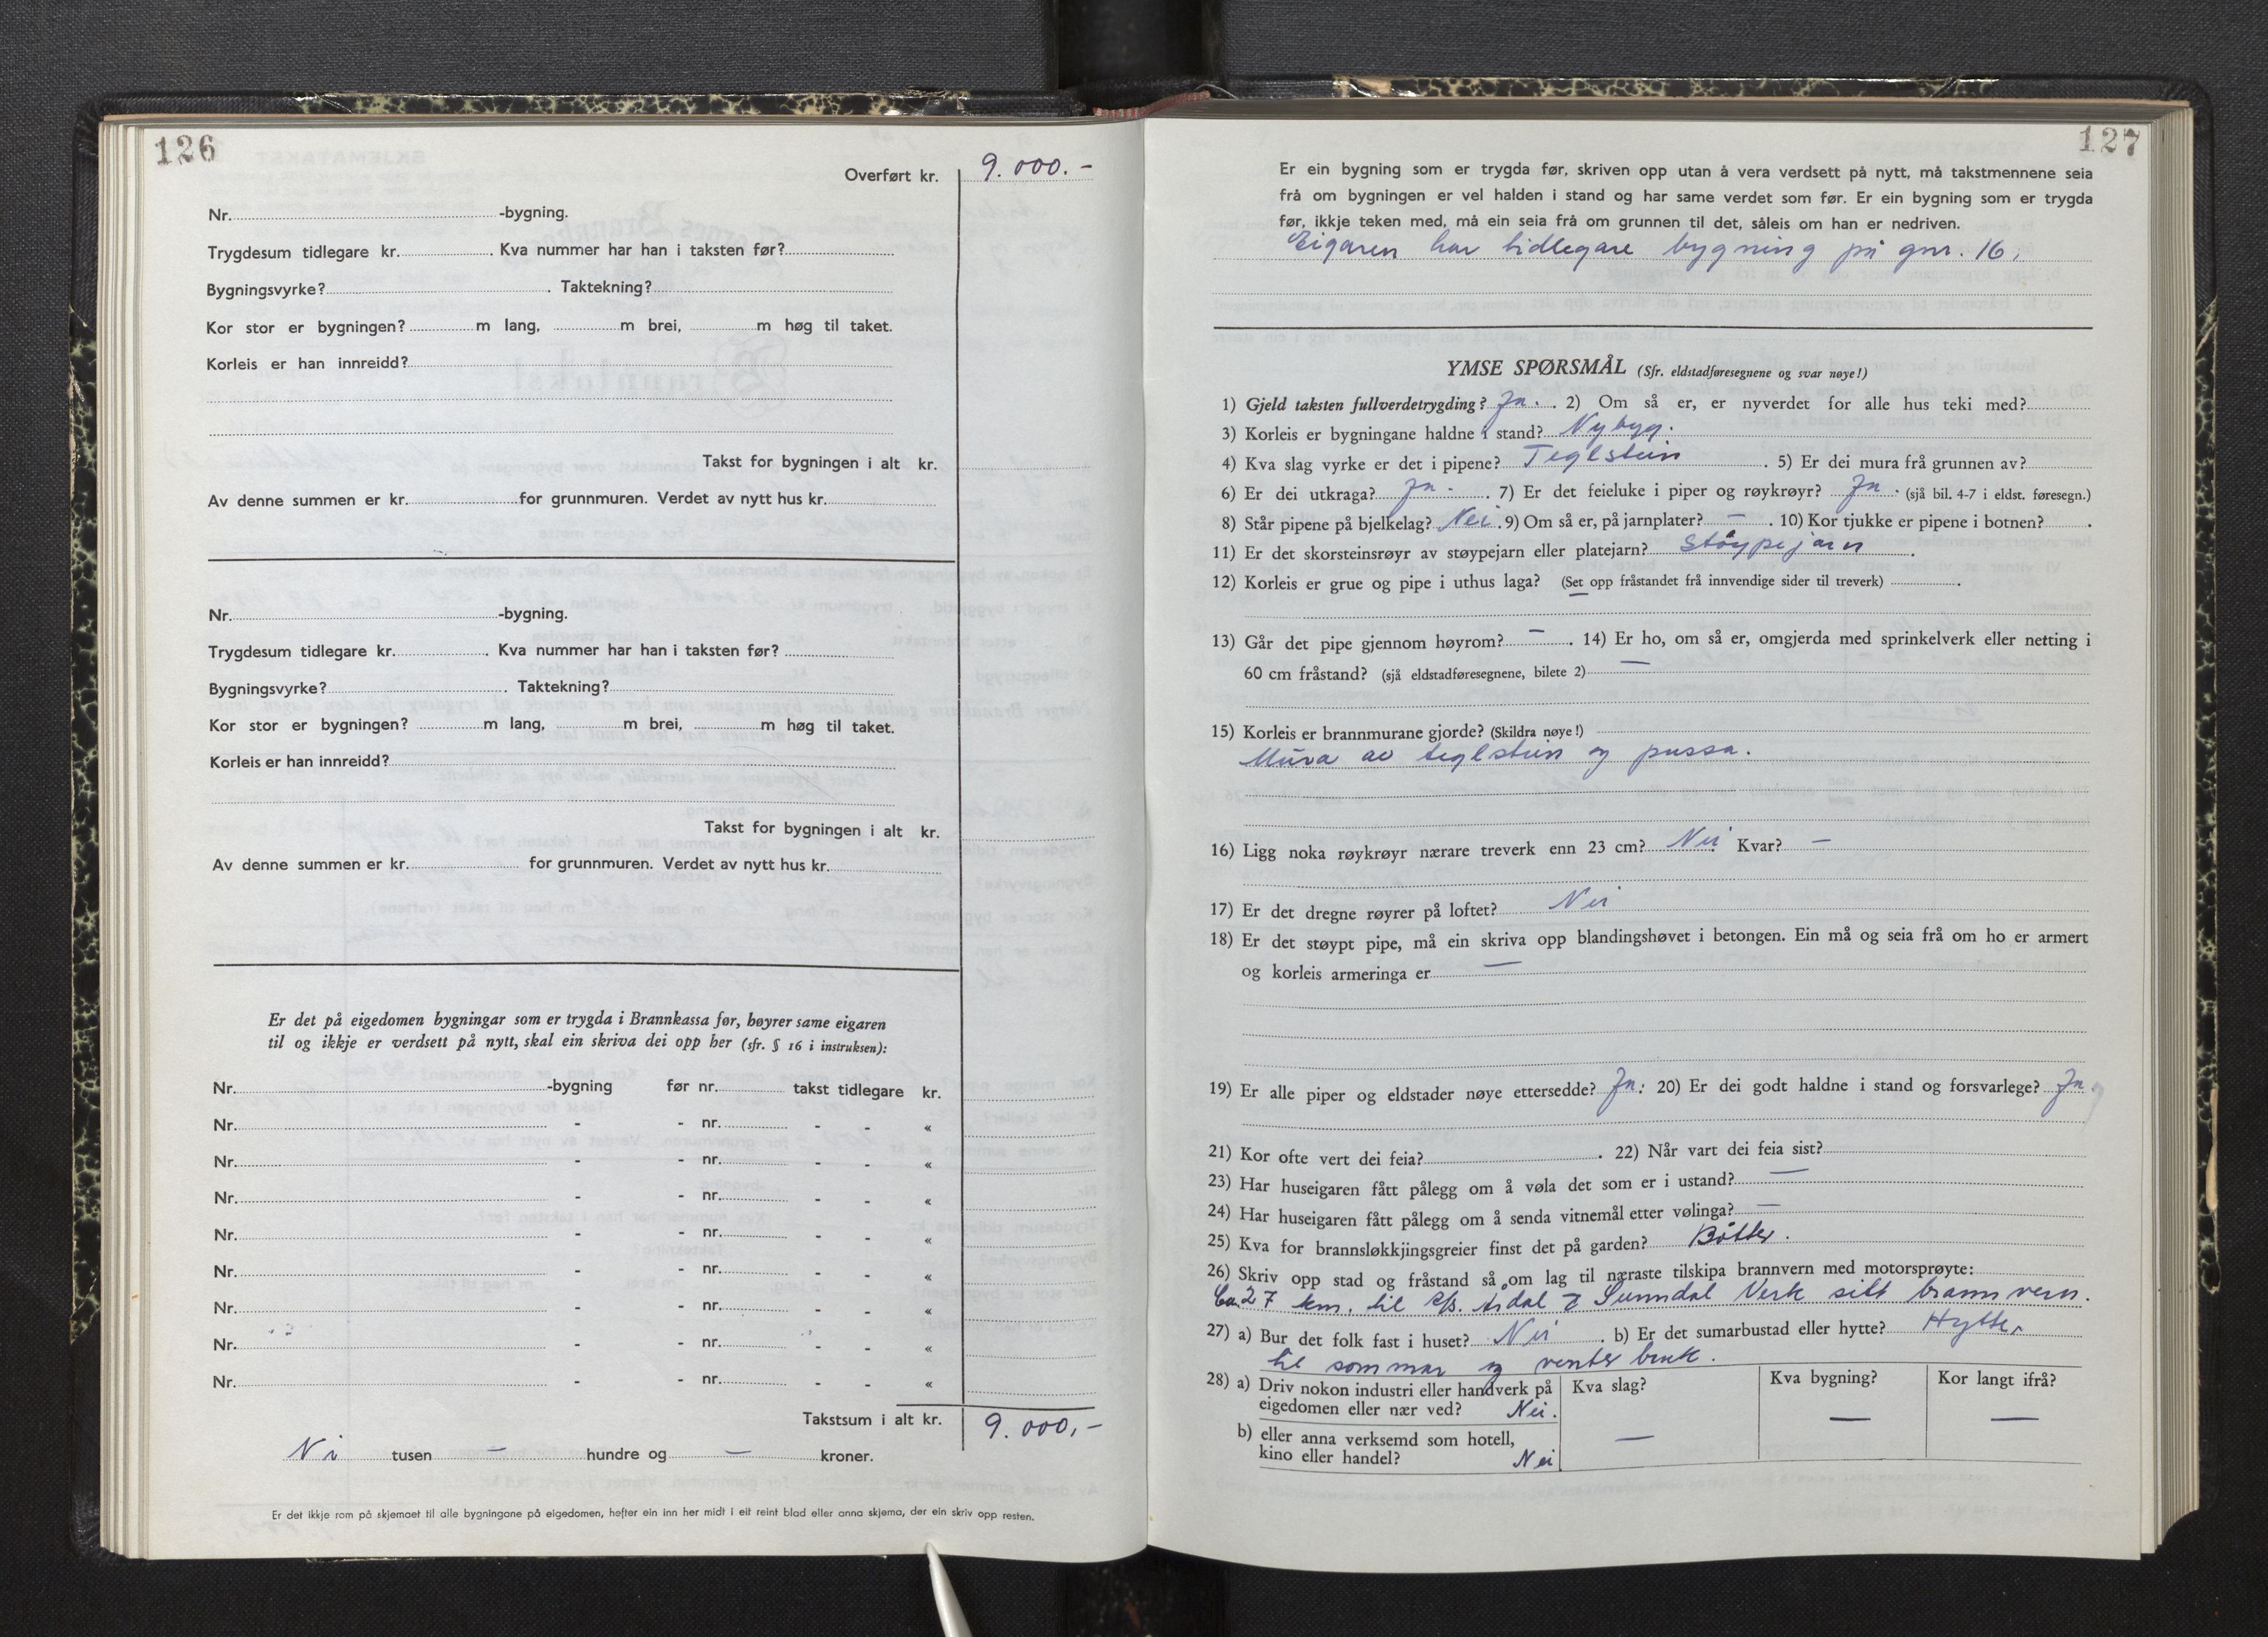 126
Overført kr. 9.000.-
Nr. -bygning.
Trygdesum tidlegare kr. . Kva nummer har han i taksten før?
Bygningsvyrke? . Taktekning?
Kor stor er bygningen? m lang, m brei, m høg til taket.
Korleis er han innreidd?
Takst for bygningen i alt kr.
Av denne summen er kr. for grunnmuren. Verdet av nytt hus kr.
Nr. -bygning.
Trygdesum tidlegare kr. . Kva nummer har han i taksten før?
Bygningsvyrke? . Taktekning?
Kor stor er bygningen? m lang, m brei, m høg til taket.
Korleis er han innreidd?
Takst for bygningen i alt kr.
Av denne summen er kr. for grunnmuren. Verdet av nytt hus kr.
Er det på eigedomen bygningar som er trygda i Brannkassa før, høyrer same eigaren
til og ikkje er verdsett på nytt, skal ein skriva dei opp her (sfr. § 16 i instruksen):
Nr. -bygning før nr. takst tidlegare kr.
Nr. - - nr. - - «
Nr. - - nr. - - «
Nr. - - nr. - - «
Nr. - - nr. - - «
Nr. - - nr. - - «
Nr. - - nr. - - «
Nr. - - nr. - - «
Nr. - - nr. - - «
Takstsum i alt kr. 9.000,-
Ni tusen - hundre og - kroner.
Er det ikkje rom på skjemaet til alle bygningane på eigedomen, hefter ein inn her midt i eit reint blad eller anna skjema, der ein skriv opp resten.
127
Er ein bygning som er trygda før, skriven opp utan å vera verdsett på nytt, må takstmennene seia
frå om bygningen er vel halden i stand og har same verdet som før. Er ein bygning som er trygda
før, ikkje teken med, må ein seia frå om grunnen til det, såleis om han er nedriven.
Eigaren har tidlegare bygning på gnr. 16,
YMSE SPØRSMÅL (Sfr. eldstadføresegnene og svar nøye!)
1) Gjeld taksten fullverdetrygding? Ja. . 2) Om så er, er nyverdet for alle hus teki med?
3) Korleis er bygningane haldne i stand? Nybyg.
4) Kva slag vyrke er det i pipene? Teglstein . 5) Er dei mura frå grunnen av?
6) Er dei utkraga? Ja - . 7) Er det feieluke i piper og røykrøyr? Ja . (sjå bil. 4-7 i eldst. føresegn.)
8) Står pipene på bjelkelag? Nei . 9) Om så er, på jarnplater? - . 10) Kor tjukke er pipene i botnen? .
11) Er det skorsteinsrøyr av støypejarn eller platejarn? Støypejarn .
12) Korleis er grue og pipe i uthus laga? (Set opp fråstandet frå innvendige sider til treverk) .
-
13) Går det pipe gjennom høyrom? - . 14) Er ho, om så er, omgjerda med sprinkelverk eller netting i
60 cm fråstand? (sjå eldstadføresegnene, bilete 2) -
15) Korleis er brannmurane gjorde? (Skildra nøye!)
Mura av teglstein og pussa.
16) Ligg noka røykrøyr nærare treverk enn 23 cm? Nei Kvar? -
17) Er det dregne røyrer på loftet? Nei
18) Er det støypt pipe, må ein skriva opp blandingshøvet i betongen. Ein må og seia frå om ho er armert
og korleis armeringa er -
19) Er alle piper og eldstader nøye ettersedde? Ja. 20) Er dei godt haldne i stand og forsvarlege? Ja.
21) Kor ofte vert dei feia? . 22) Når vart dei feia sist?
23) Har huseigaren fått pålegg om å vøla det som er i ustand? -
24) Har huseigaren fått pålegg om å senda vitnemål etter vølinga? -
25) Kva for brannsløkkjingsgreier finst det på garden? Bøtter.
26) Skriv opp stad og fråstand så om lag til næraste tilskipa brannvern med motorsprøyte:
Ca. 27 km. til A/S. Årdal & Sunndal Verk sitt brannvern.
27) a) Bur det folk fast i huset? Nei . b) Er det sumarbustad eller hytte? Hytte,
til sommar og venter bruk.
28) a) Driv nokon industri eller handverk på Kva slag? Kva bygning? Kor langt ifrå?
eigedomen eller nær ved? Nei. - -
b) eller anna verksemd som hotell, -
kino eller handel? Nei